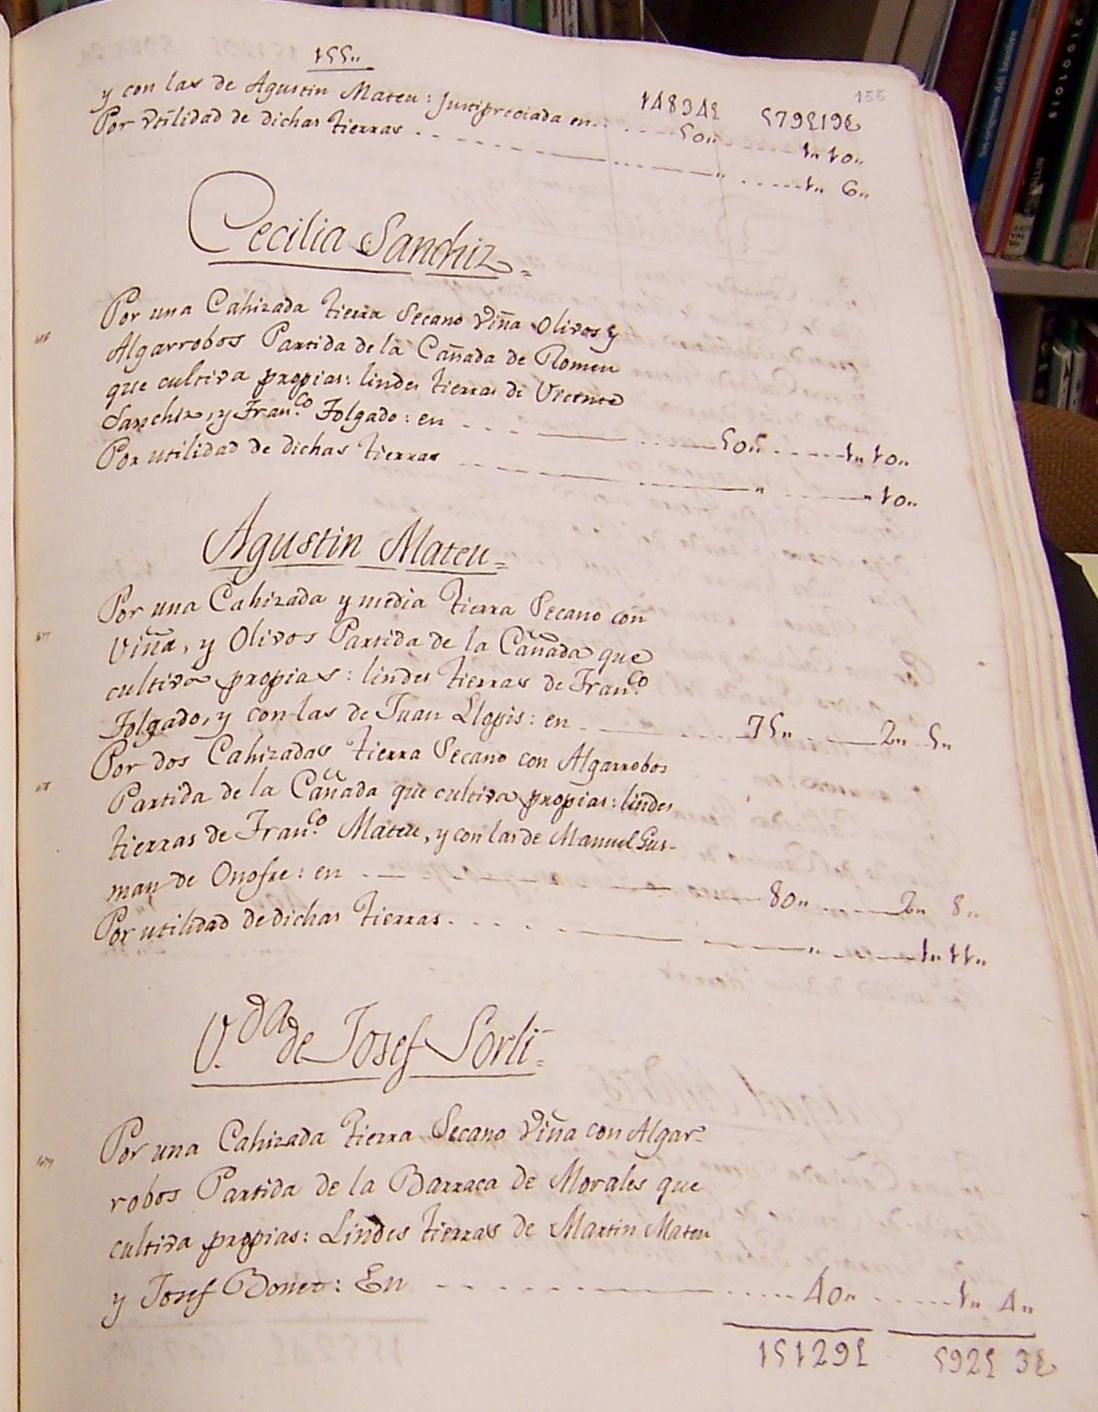 155„
155
y con las de Agustin Mateu: Justipreciada en.. 50„ 1„ 10„
Por vtilidad de dichas tierras „ 1„ 6„
Cecilia Sanchiz=
Por una Cahizada tierra Secano viña Olivos y
Algarrobos Partida de la Cañada de Romeu
que cultiva propias: lindes tierras de Vicente
Sanchiz, y Fran.co Folgado: en 50„ 1„ 10„
Por utilidad de dichas tierras „ „ 10„
Agustin Mateu=
Por una Cahizada y media tierra Secano con
Viña, y Olivos Partida de la Cañada que
cultiva propias: lindes tierras de Fran.co
Folgado, y con las de Juan Llopis: en 75„ 2„ 5„
Por dos Cahizadas tierra Secano con Algarrobos
Partida de la Cañada que cultiva propias: lindes
tierras de Fran.co Mateu, y con las de Manuel Gus-
man de Onofre: en 80„ 2„ 8„
Por utilidad de dichas tierras. „ 1„ 11„
V.da de Josef Sorli=
Por una Cahizada tierra Secano viña con Algar=
robos Partida de la Barraca de Morales que
cultiva propias: Lindes tierras de Martin Mateu
y Josef Bonet: En 40„ 1„ 4„